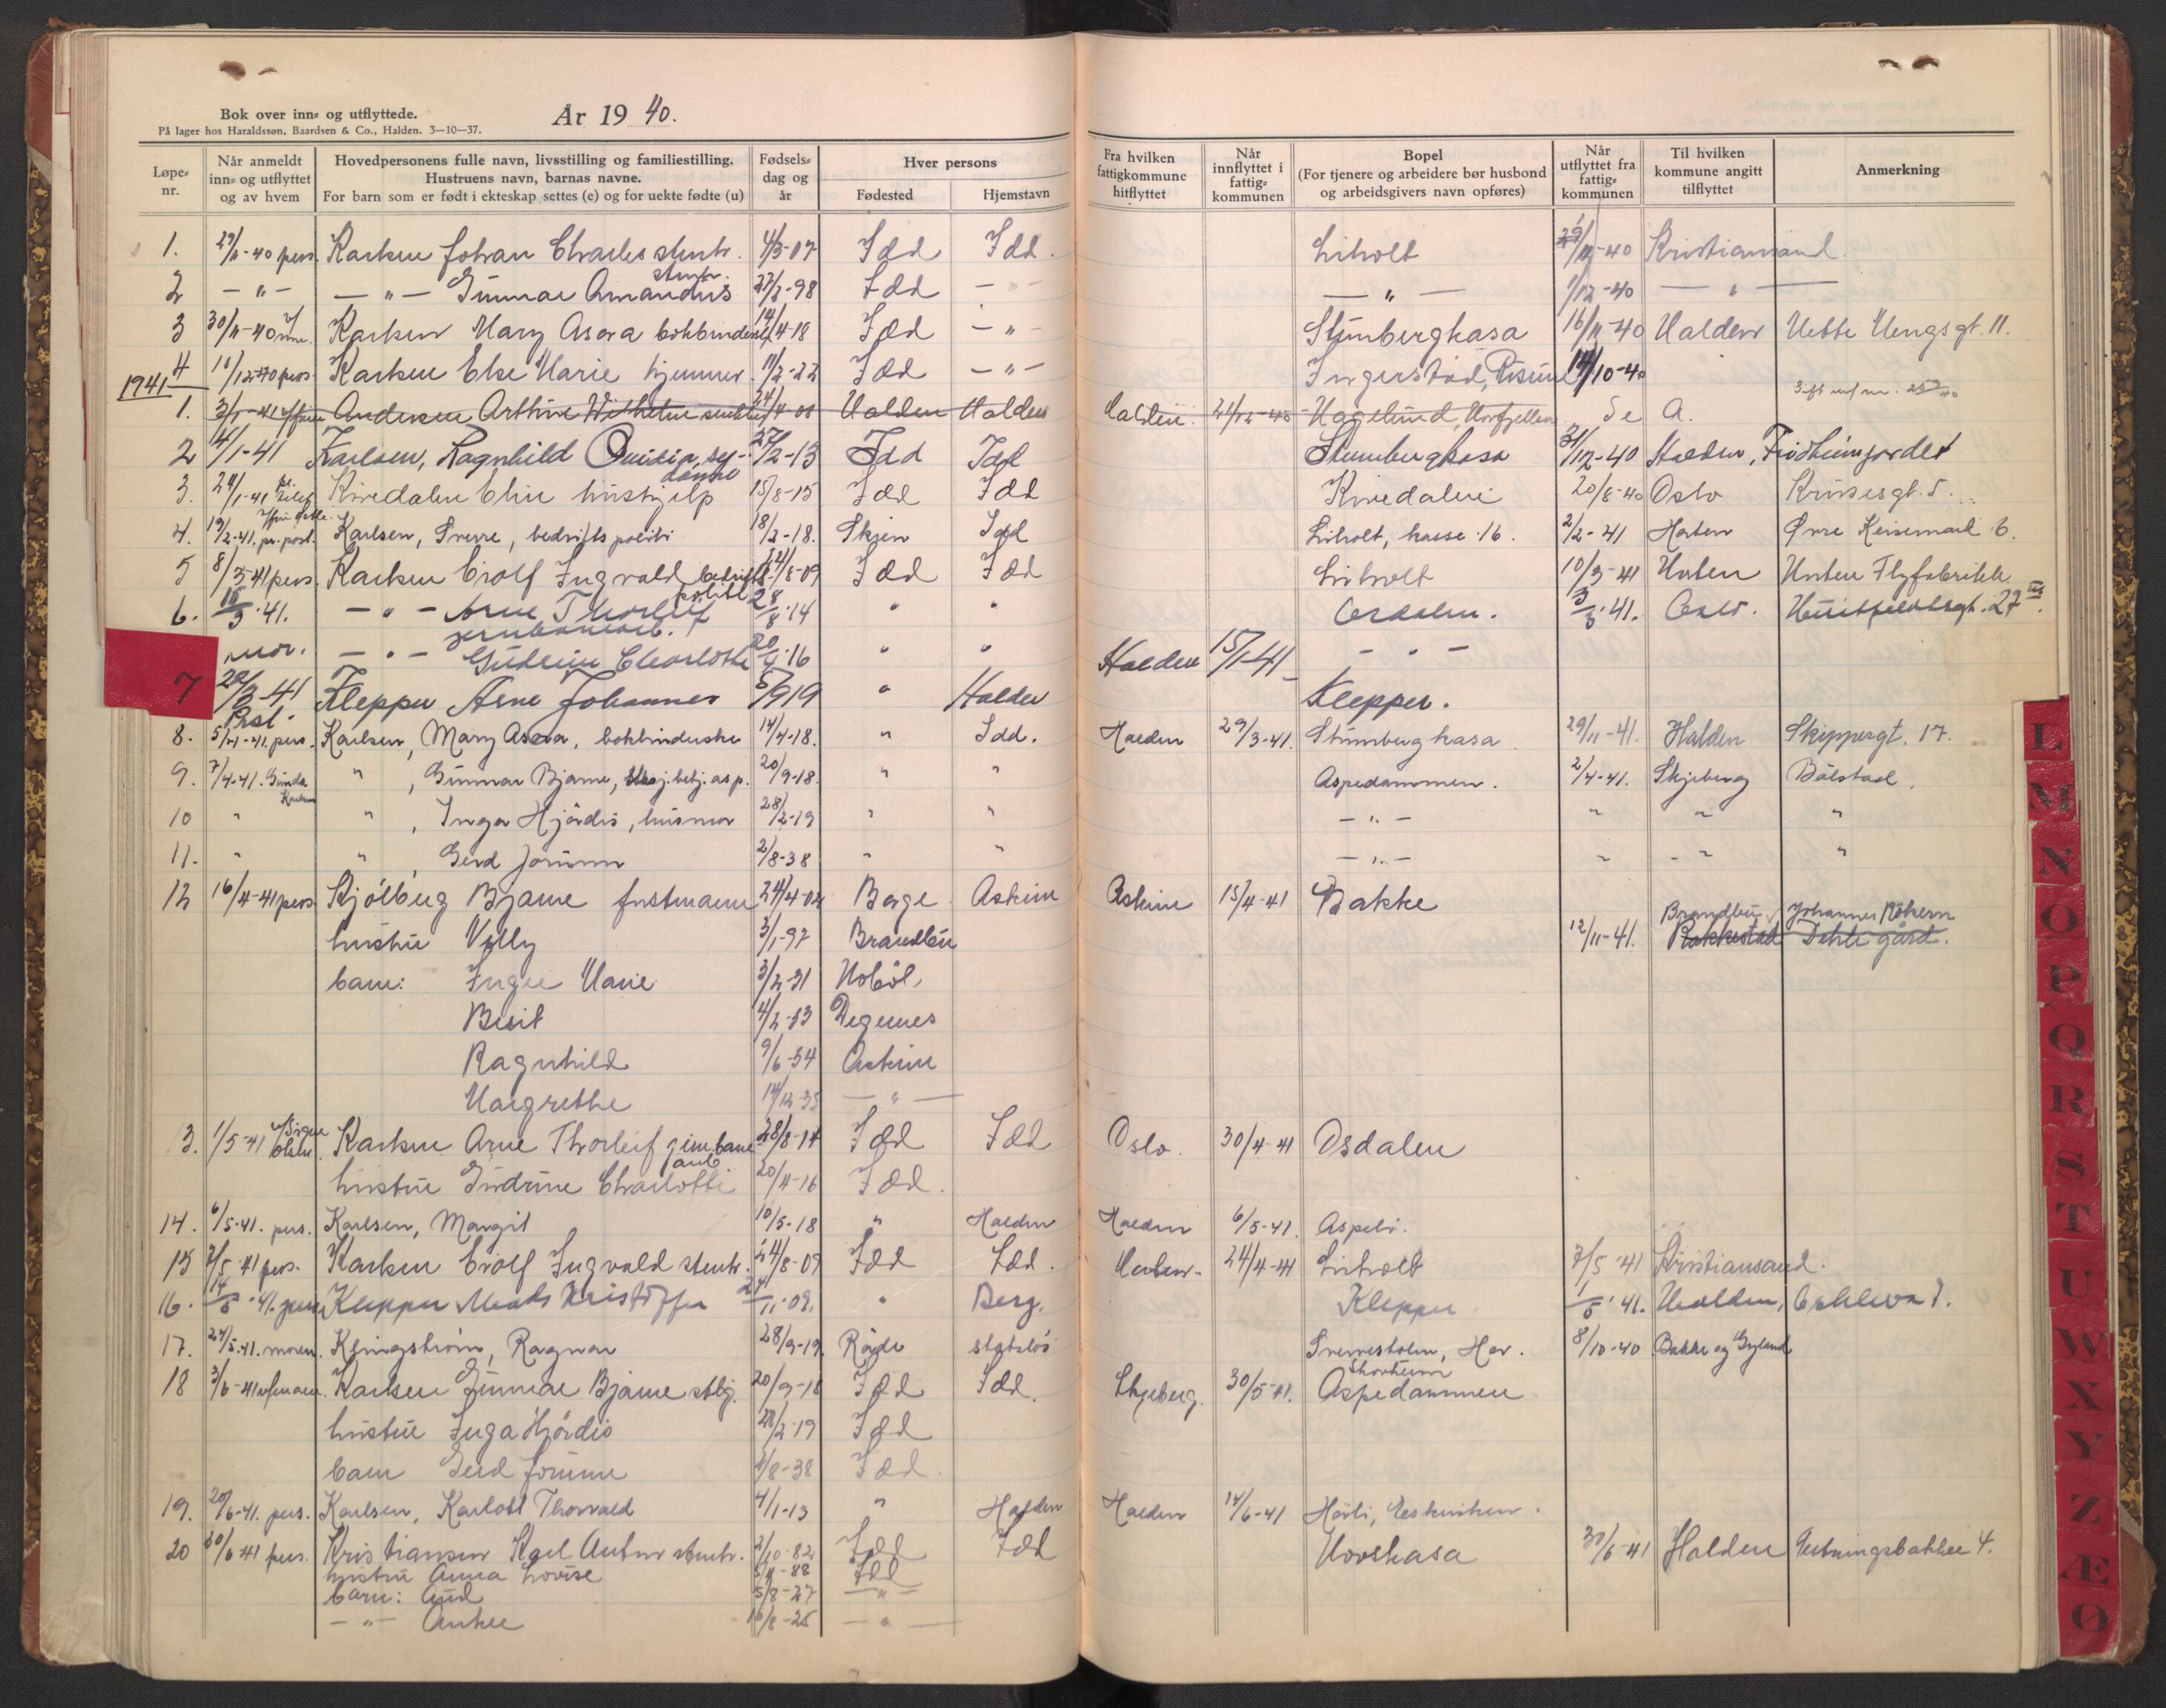 Bok over inn- og utflyttede.
På lager hos Haraldssøn, Baardsen & Co., Halden. 3—10—37.
År 1940.
Løpe-nr. Når anmeldt inn- og utflyttet og av hvem Hovedpersonens fulle navn, livsstilling og familiestilling. Hustruens navn, barnas navne. For barn som er født i ekteskap settes (e) og for uekte fødte (u) Fødsels-dag og år Hver persons Fødested Hjemstavn Fra hvilken fattigkommune hitflyttet Når innflyttet i fattig-kommunen Bopel (For tjenere og arbeidere bør husbond og arbeidsgivers navn opføres) Når utflyttet fra fattig-kommunen Til hvilken kommune angitt tilflyttet Anmerkning
1. 29/11-40 pers. Karlsen Johan Charles stenh. 4/3-07 Idd Idd. Liholt 29/11-40 Kristiansand.
2 —"— —"— Gunnar Amandus stenh. 27/7-98 Idd —"— —"— 1/12-40 —"—
3 30/11-40 Karlsen Mary Asora bokbinderske 14/4-18 Idd —"— Stumberghasa 16/11-40 Halden Vette Vengsgt. 11.
4 10/12-40 pers. Karlsen Else Marie hjemmev. 11/2-22 Idd —"— Ingerstad, 14/10-40
1941
1. 3/1-41 Andersen Arthur Wilhelm 24/4-00 Halden Halden Halden 21/12-40 Hagelund, Se A.
2 14/1-41 Karlsen, Ragnhild sydame 27/2-13 Idd Idd Stumberghasa 31/12-40 Halden, Frødheimjordet
3. 24/1-41 Kivedalen Elin hushjelp 15/8-15 Idd Idd Kivedalen 20/8-40 Oslo
4. 19/2-41. pr. post. Karlsen, Sverre, bedriftspoliti 18/2-18. Skien Idd Liholt, kasse 16. 2/2-41 Horten Øvre Keisemark 6.
5 8/3-41 pers. Karlsen Erolf Ingvald bedriftspoliti 24/8-09 Idd Idd Liholt 10/3-41 Horten Horten Flyfabrikk
6. 18/3-41. —"— Arne Thorleif jernbanearb. 28/8-14 " " Osdalen. 3/3-41. Oslo. Huitfeldtsgt. 27 III.
mor. —"— Gudrun Charlotte 20/4-16 " " —"—
7 22/3-41 Kleppe Arne Johannes 5/9 19 " Halden Halden 15/1-41 Kleppe.
8. 5/4-41. pers. Karlsen, Mary Asora, bokbinderske 14/4-18. " Idd. Halden 29/3-41. Stumberghasa 29/11-41. Halden Skippergt. 17.
9. 7/4-41. Gunda Karlsen " , Gunnar Bjarne, betj. asp. 20/9-18. " " Aspedammen. 2/4-41. Skjeberg Bølstad.
10 " " , Inga Hjørdis, husmor 28/2-19 " " —"— " " "
11. " " Gerd Jorunn 2/8-38 " " —"— " " "
12 16/4-41 pers. Kjølberg Bjarne 24/4-04 Borge Askim Askim 15/4-41 Bakke
hustru Villy 3/1-97 Brandbu 12/11-41. Rakkestad Dehli gård. Brandbu Johannes Røken
barn: Inger Marie 3/2-31 Hobøl
Berit 4/2-33 Degernes
Ragnhild 9/6-34 Askim
Margrethe 14/12-35 —"—
13. 1/5-41 Karlsen Arne Thorleif jernbanearb. 28/8-14 Idd Idd Oslo. 30/4-41 Osdalen
hustru Gudrun Charlotte 20/4-16 Idd.
14. 6/5-41. pers. Karlsen, Margit 10/5-18 " Halden Halden 6/5-41. Aspeli.
15 7/5-41 pers. Karlsen Erolf Ingvald stenh. 24/8-09 Idd Idd. Horten 24/4-41 Liholt 7/5-41 Kristiansand.
16. 14/5-41. Kleppe Mads Kristoffer 24/11-09. " Berg. Kleppe 1/5-41. Halden,
17. 27/5-41. moren. Klingstrøm, Ragnar 28/9-19. Råde statsløs Sverresholm, Hov. 8/10-40 Bakke og Gyland
18 3/6-41 Karlsen Gunnar Bjarne stbj. 20/9-18 Idd Idd. Skjeberg. 30/5-41. Thorheim Aspedammen
hustru Inga Hjørdis 28/2-19 Idd
barn Gerd Jorunn 2/8-38 Idd.
19. 20/6-41. pers. Karlsen, Karlott Thorvald 4/1-13 " Halden Halden 14/6-41 Hørli, Eskeviken.
20 30/6-41 pers. Kristiansen Karl Anton stenh. 2/10-82 Idd Idd Hovshasa 30/6-41 Halden Festningsbakken 4.
hustru Anna Lovise 5/11-88 Idd
barn: Aud 5/8-27 —"—
—"— Anker 16/8-25 —"—
L
M
N
O
P
Q
R
S
T
U
W
X
Y
Z
Æ
Ø